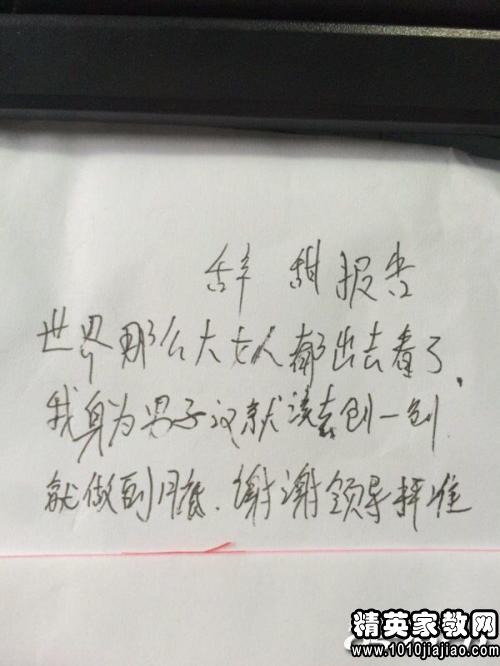 辞 甜报告
世界那么大女人都出去看了,
我身为男子汉就该去创一创.
就做到月底.谢谢领导准
精英家教网
www.1010jiajiao.com